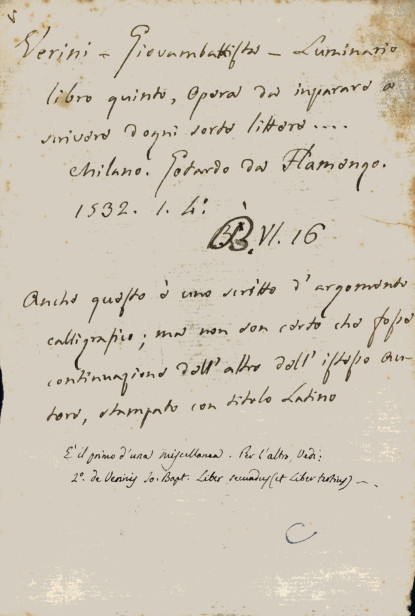 Verini - Giovambattista - Luminario
libro quinto, Opera da inparare a
scrivere d'ogni sorte littere....
Milano. Gotardo da Flamengo.
1532. 1. 4.°
BB. VI. 16
Anche questo è uno scritto d'argomento
calligrafico; ma non son certo che fosse
continuazione dell'altro dell'istesso Au-
tore, stampato con titolo Latino
E' il primo d'una miscellanea. Per l'altro, Vedi:
2°. de Verinis Jo. Bapt. Liber secundus (et Liber tertius) -